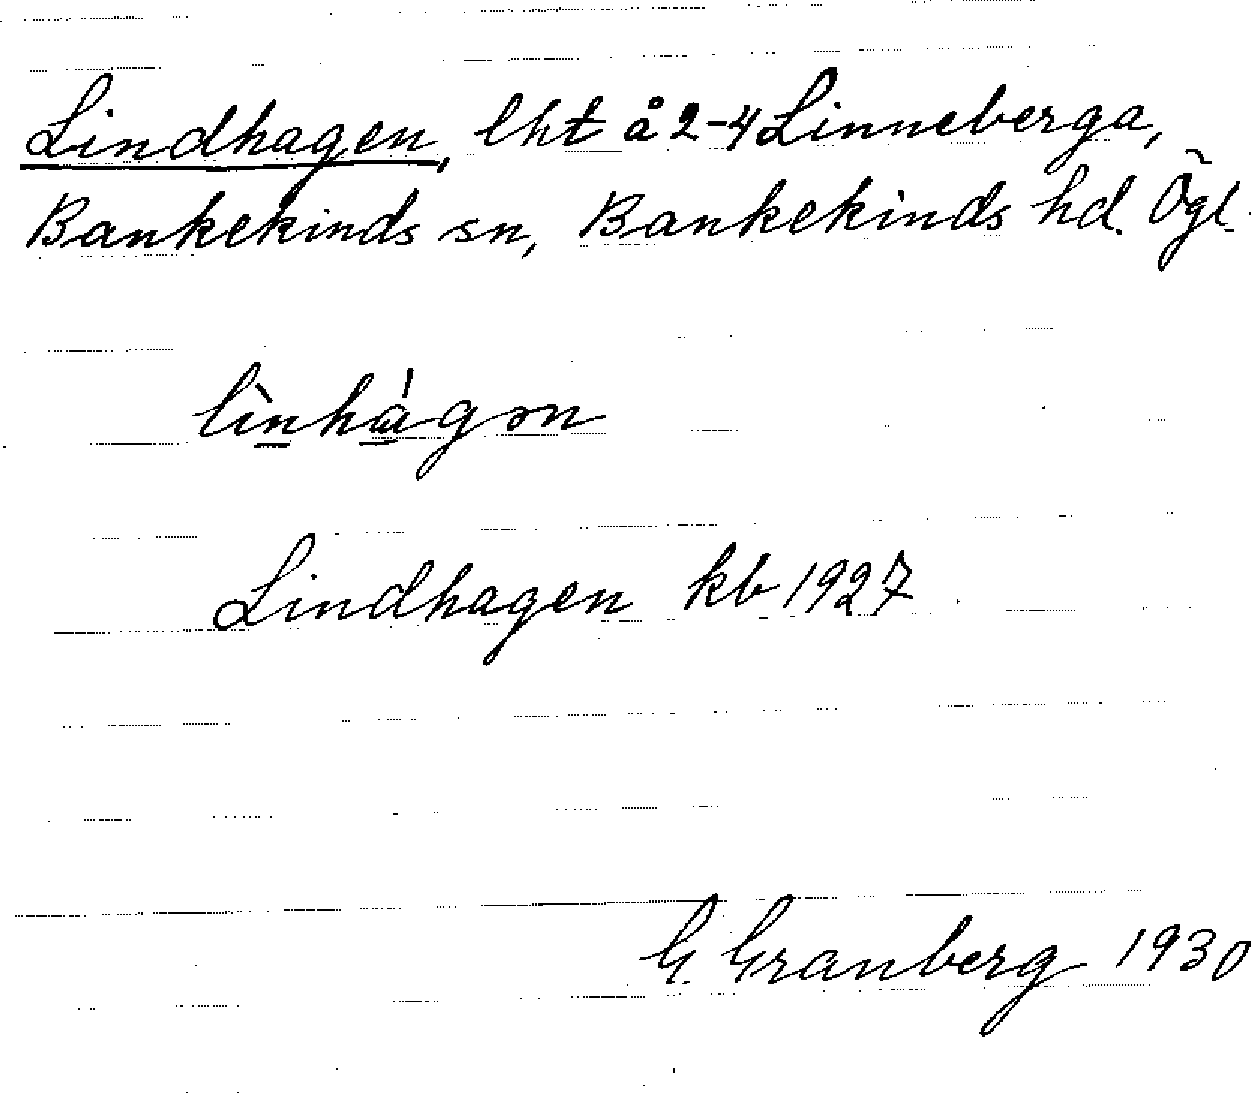 Lindhagen, lht å 2-4 Linneberga,
Bankekinds sn, Bankekinds hd. Ögl.
Lindhagen kb 1927
G. Granberg 1930